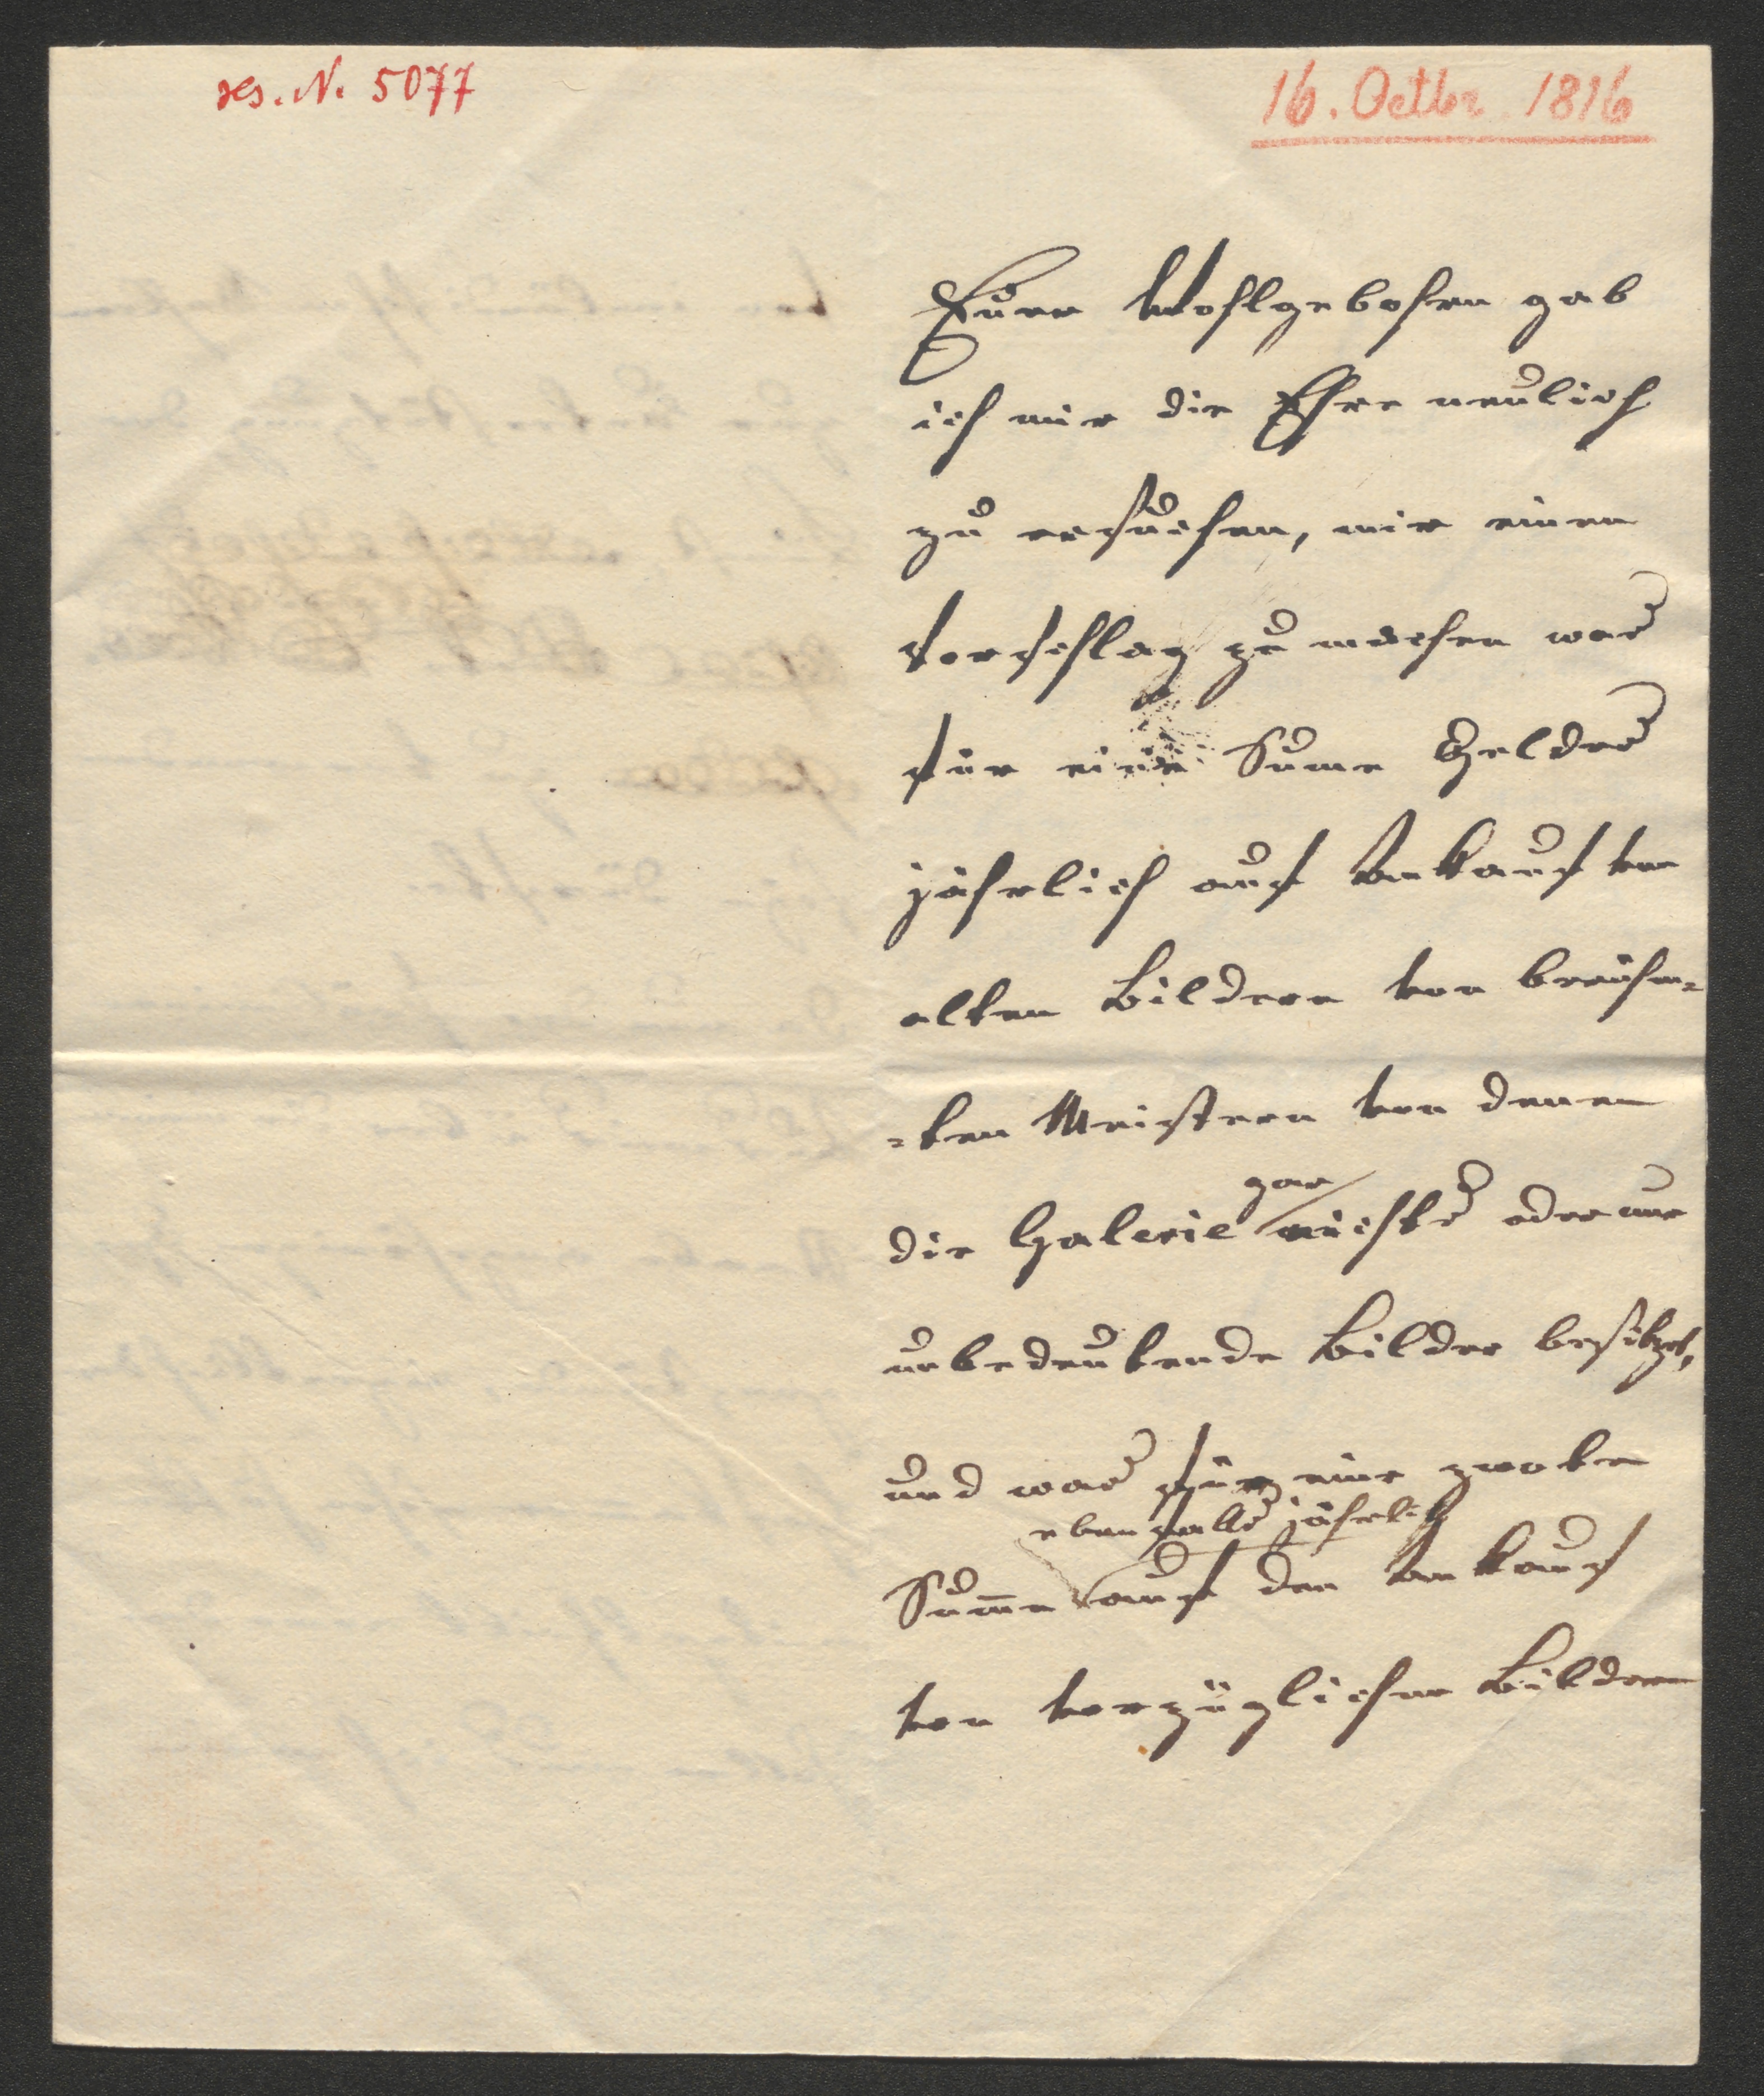 res. N. 5077
16. Octbr. 1816
Eurer Wohlgebohren gab
ich mir die Ehre neulich
zu ersuchen, mir einen
Vorschlag zu machen was
für eine Sume Geldes
jährlich auf Ankauf von
alten Bildern von berühm=
=ten Meistern von denen
gar
die Galerie nichts oder nur
unbedeutende Bilder besitzet,
und was für eine zwote
ebenfalls jährlich
Sum̅e auf den Ankauf
von vorzüglichen Bildern